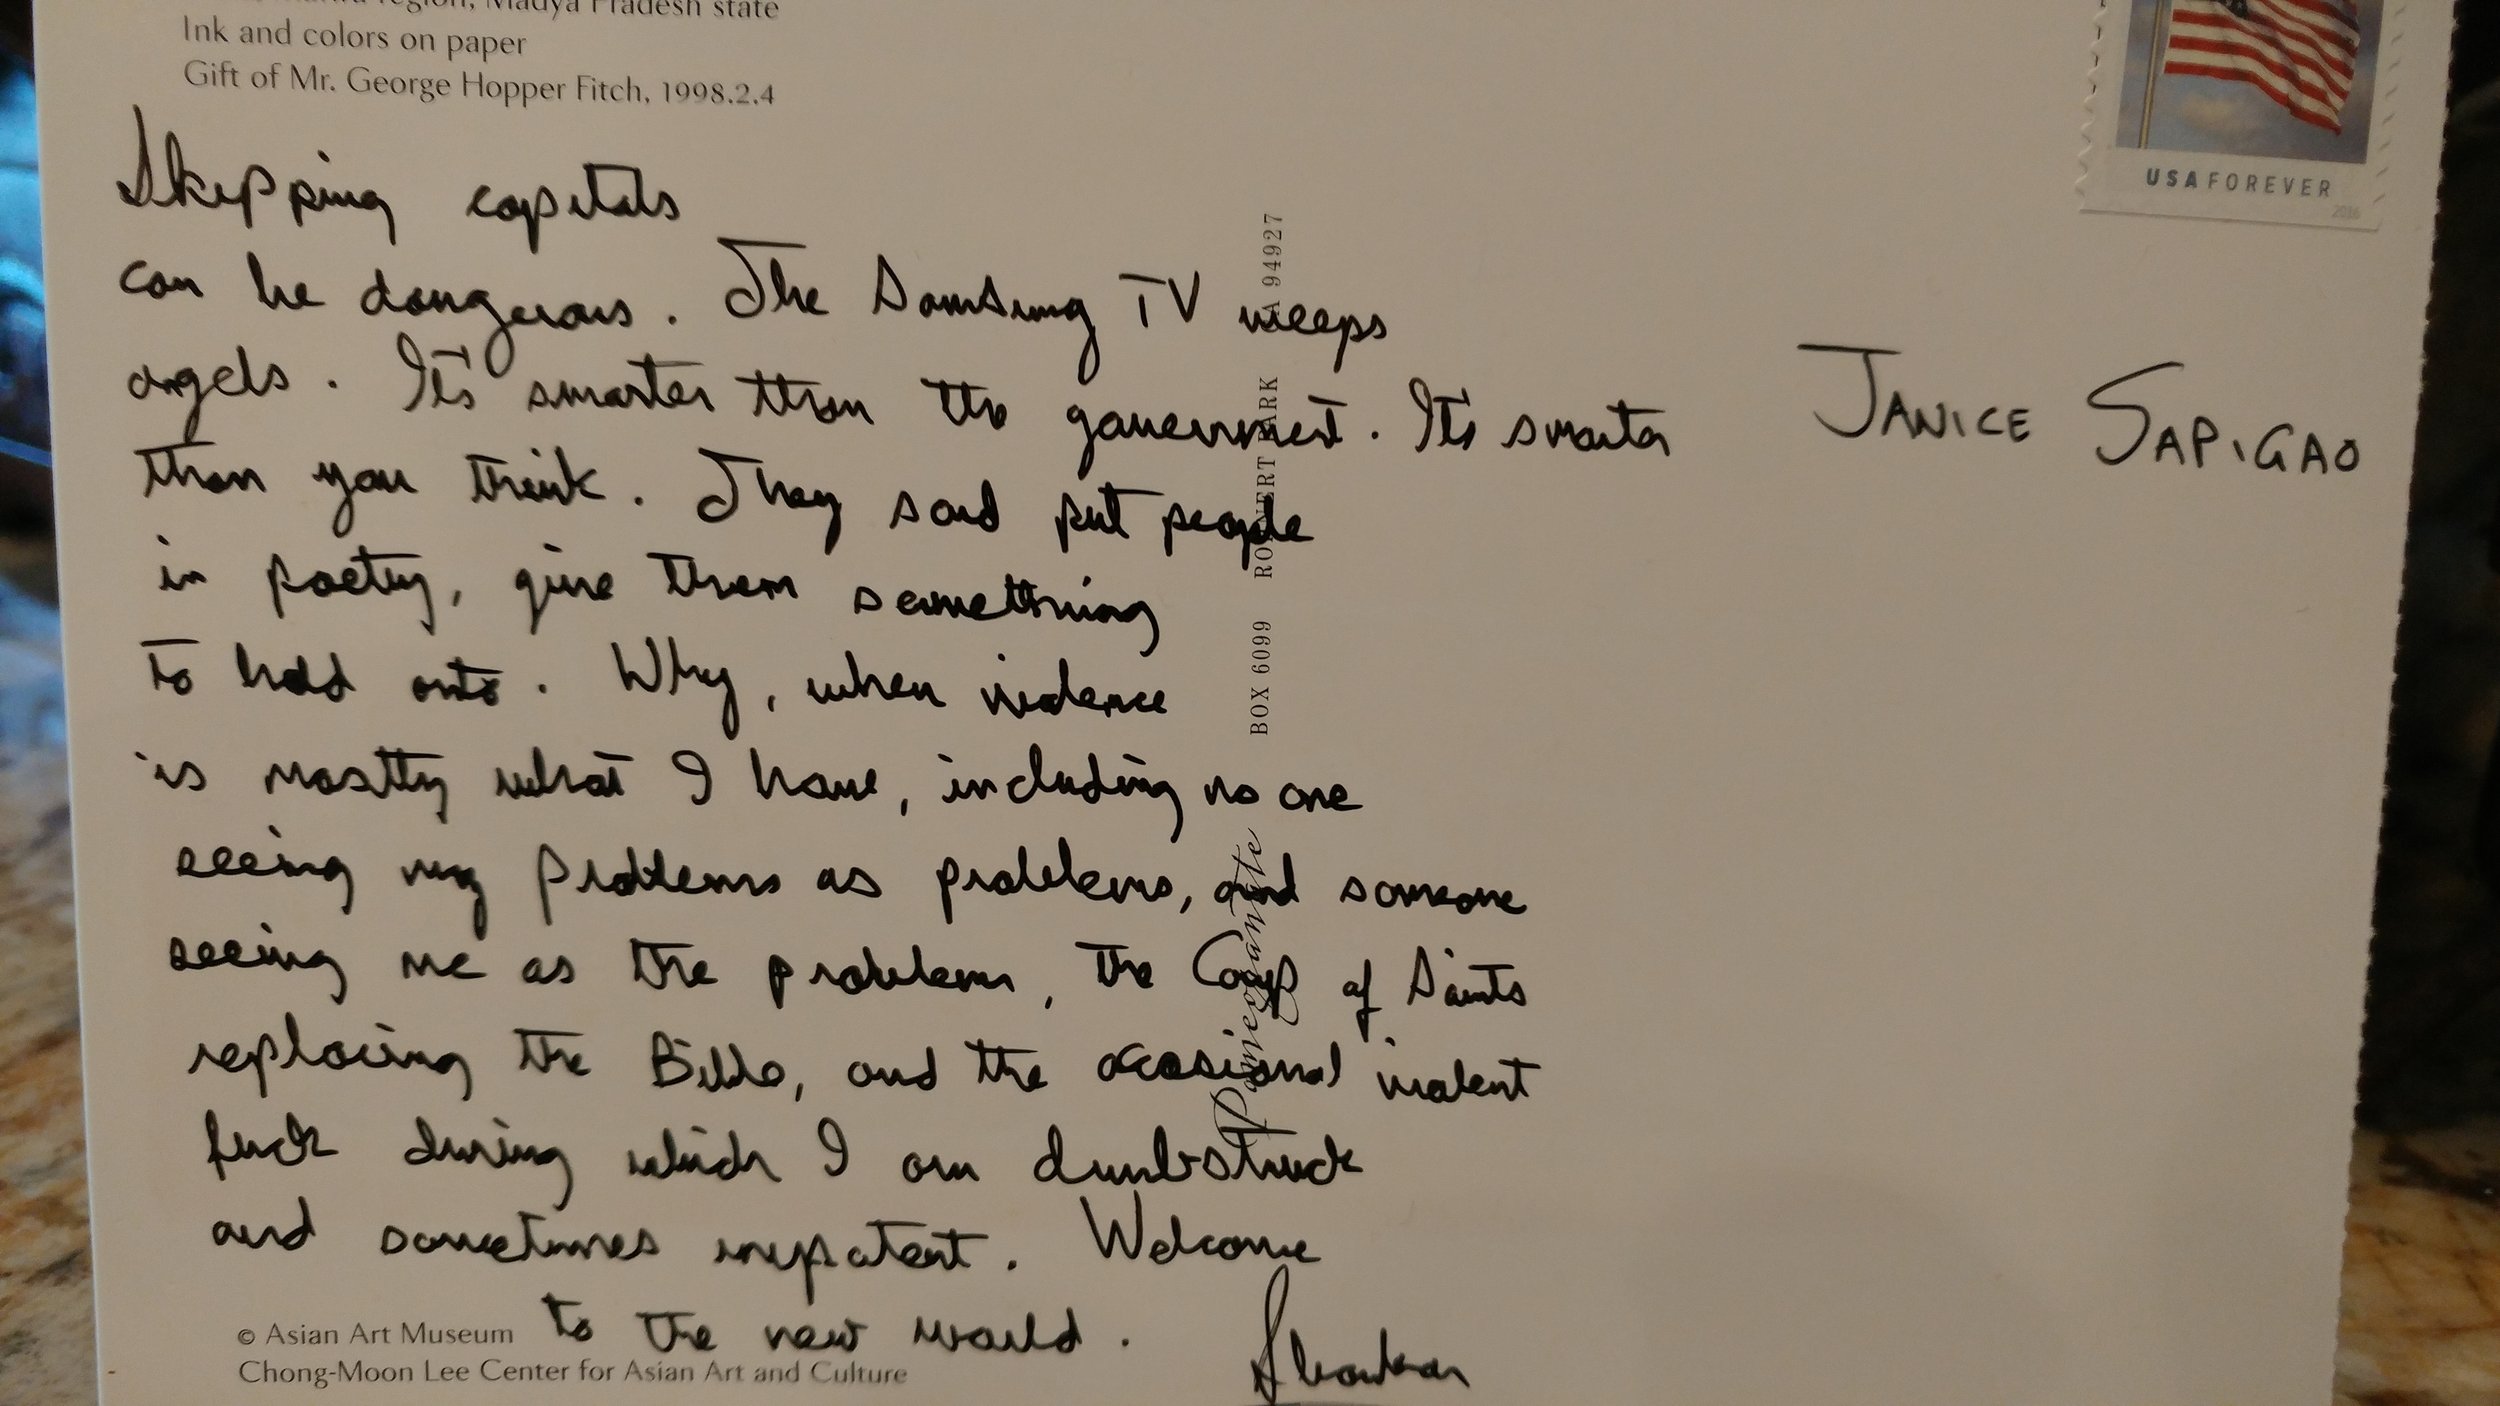 region, Madya Pradesh state
Ink and colors on paper
Gift of Mr. George Hopper Fitch, 1998.2.4
USA FOREVER
2016
Skipping capitals
can be dangerous. The Samsung TV weeps
angels. It's smarter than the government. It's smarter
than you think. They said put people
in poetry, give them something
to hold onto. Why, when violence
is mostly what I have, including no one
seeing my problems as problems, and someone
seeing me as the problem, the of Saints
replacing the Bills, and the occasional violent
fuck during which I am dumbstruck
and sometimes impatent. Welcome
to the new world.
JANICE SAPIGAO
Pomegranate
BOX 6099 ROHNERT PARK CA 94927
© Asian Art Museum
Chong-Moon Lee Center for Asian Art and Culture